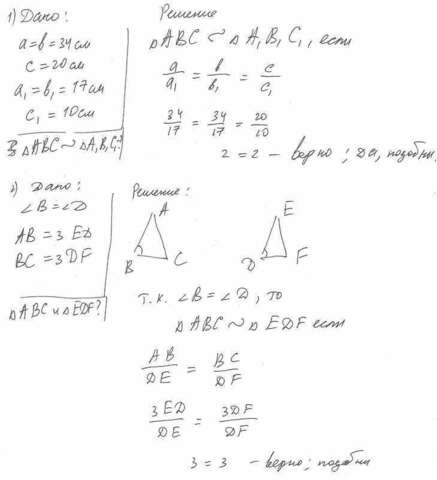 1) Дано:
a=b=34см
c=20см
a₁=b₁=17см
c₁=10см
ΔABC~ΔA₁B₁C₁-?
Решение
ΔABC ~ ΔA₁B₁C₁, если
a/a₁ = b/b₁ = c/c₁
34/17 = 34/17 = 20/10
2=2 - верно; да, подобны.
2) Дано:
∠B=∠D
AB=3ED
BC=3DF
ΔABC и ΔEDF?
Решение:
A
B
C
E
D
F
т.к. ∠B=∠D, то
ΔABC~ΔEDF если
AB/DE = BC/DF
3ED/DE = 3DF/DF
3=3 - верно; подобны